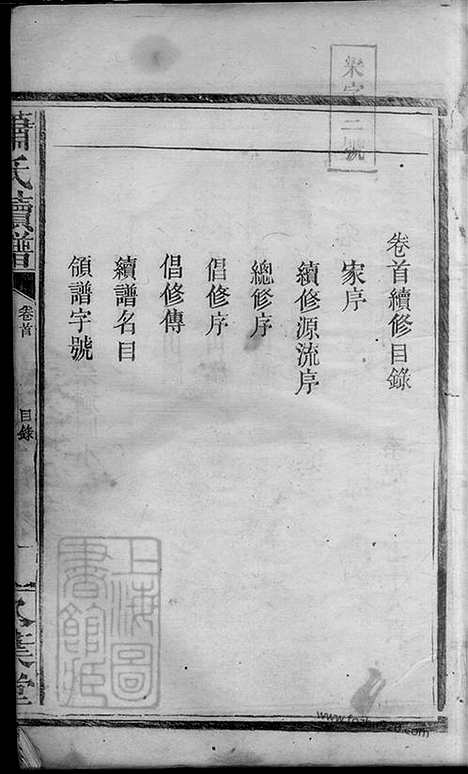 榮字二號
卷首續修目錄
家序
續修源流序
總修序
倡修序
倡修傳
續譜名目
領譜字號
蕭氏續譜
卷首
目錄
一
上海圖
書館